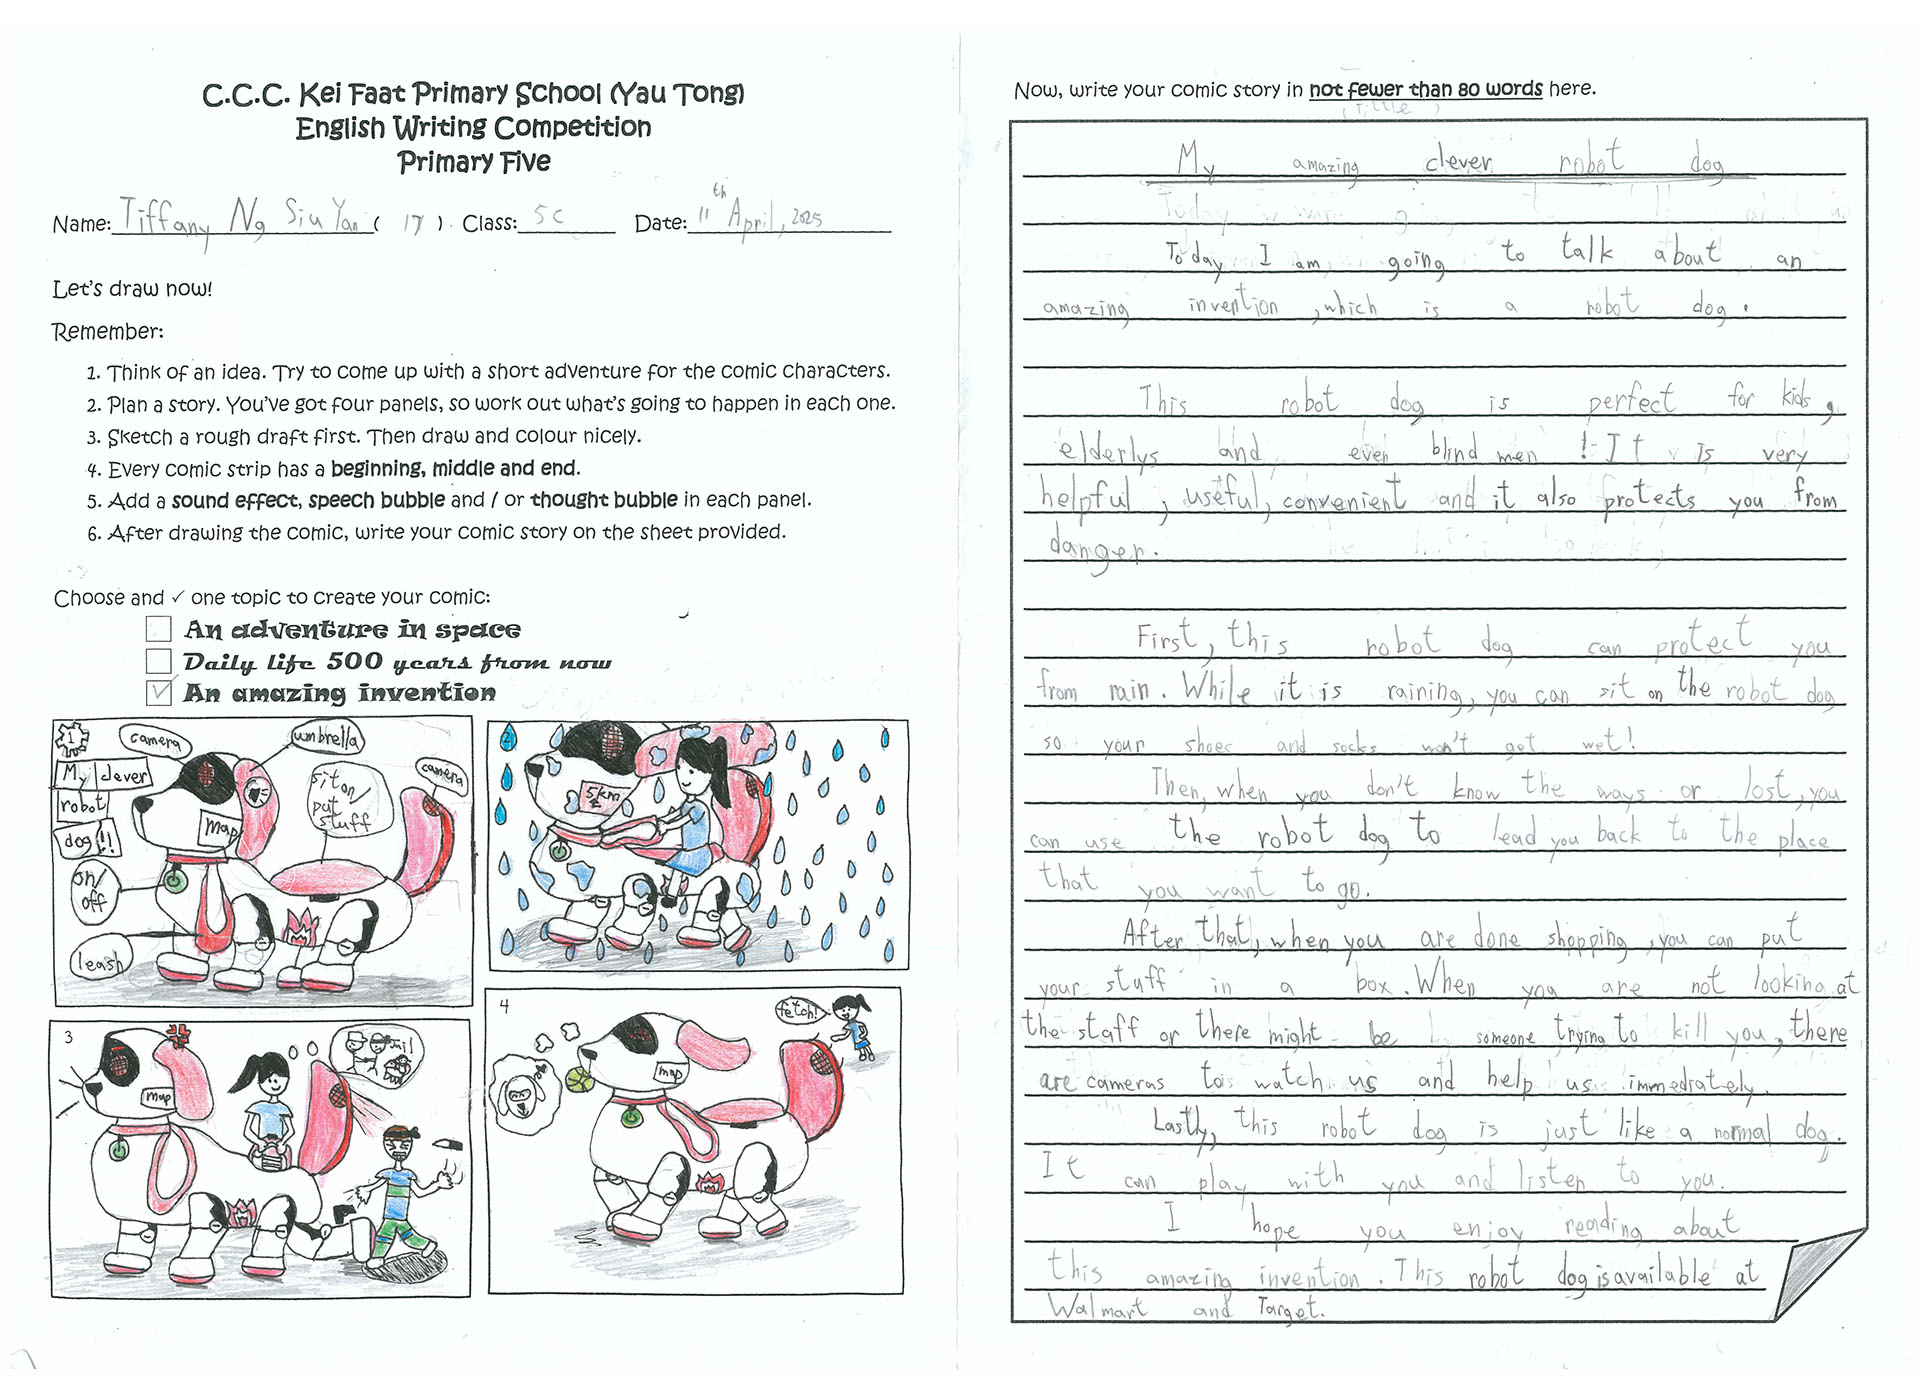 C.C.C. Kei Faat Primary School (Yau Tong)
English Writing Competition
Primary Five
Name: Tiffany Ng Siu Yan ( 17 ) Class: 5C Date: 11th April, 2025
Let's draw now!
Remember:
1. Think of an idea. Try to come up with a short adventure for the comic characters.
2. Plan a story. You've got four panels, so work out what's going to happen in each one.
3. Sketch a rough draft first. Then draw and colour nicely.
4. Every comic strip has a beginning, middle and end.
5. Add a sound effect, speech bubble and / or thought bubble in each panel.
6. After drawing the comic, write your comic story on the sheet provided.
Choose and ✓ one topic to create your comic:
An adventure in space
Daily life 500 years from now
✓ An amazing invention
1
camera
umbrella
My clever
robot
dog!!
sit on/
put
stuff
camera
map
on/
off
leash
2
5km
3
map
4
fetch!
map
Now, write your comic story in not fewer than 80 words here.
(Title)
My amazing clever robot dog
Today I am going to talk about an
amazing invention, which is a robot dog.
This robot dog is perfect for kids,
elderlys and even blind men! It is very
helpful, useful, convenient and it also protects you from
danger.
First, this robot dog can protect you
from rain. While it is raining, you can sit on the robot dog
so your shoes and socks won't get wet!
Then, when you don't know the ways or lost, you
can use the robot dog to lead you back to the place
that you want to go.
After that, when you are done shopping, you can put
your stuff in a box. When you are not looking at
the staff or there might be someone trying to kill you, there
are cameras to watch us and help us immediately.
Lastly, this robot dog is just like a normal dog.
It can play with you and listen to you.
I hope you enjoy reading about
this amazing invention. This robot dog is available at
Walmart and Target.